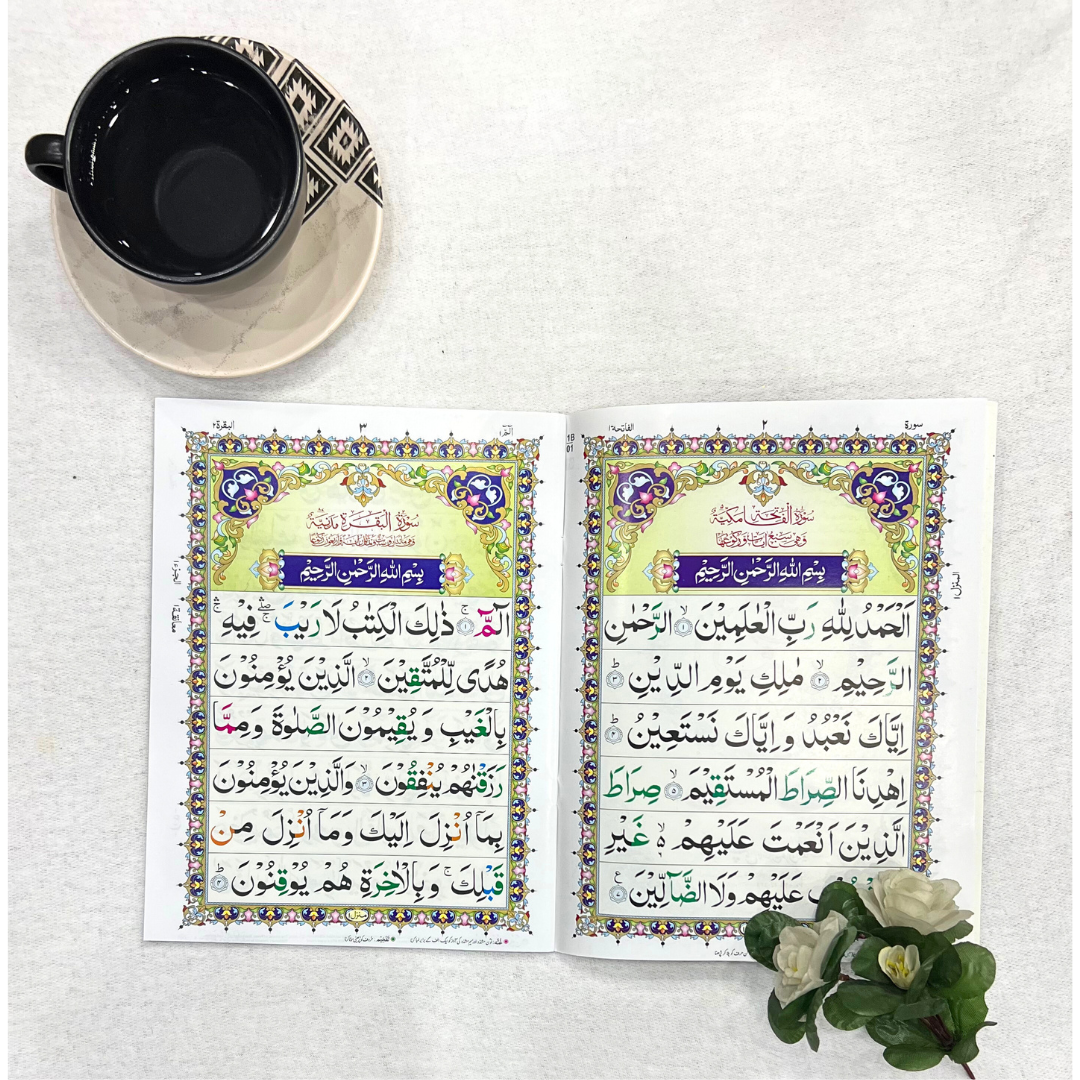 سورة
٢
الفاتحة ١
سُوْرَةُ الْفَاتِحَةِ مَكِّيَّةٌ
بِسْمِ اللهِ الرَّحْمٰنِ الرَّحِيْمِ
اَلْحَمْدُ لِلّٰهِ رَبِّ الْعٰلَمِيْنَ ۙ‏ ١ الرَّحْمٰنِ
الرَّحِيْمِ ۙ‏ ٢ مٰلِكِ يَوْمِ الدِّيْنِ ؕ‏ ٣
اِيَّاكَ نَعْبُدُ وَ اِيَّاكَ نَسْتَعِيْنُ ؕ‏ ٤
اِهْدِنَا الصِّرَاطَ الْمُسْتَقِيْمَ ۙ‏ ٥ صِرَاطَ
الَّذِيْنَ اَنْعَمْتَ عَلَيْهِمْ ۙ ٦ غَيْرِ
عَلَيْهِمْ وَلَا الضَّآلِّيْنَ ٧
المنزل ١
1B
01
٣
البقرة ٢
سُوْرَةُ الْبَقَرَةِ مَدَنِيَّةٌ
بِسْمِ اللهِ الرَّحْمٰنِ الرَّحِيْمِ
الٓمّٓ ۚ‏ ١ ذٰلِكَ الْكِتٰبُ لَا رَيْبَ ۛۖۚ فِيْهِ ۛۚ
هُدًى لِّلْمُتَّقِيْنَ ۙ‏ ٢ الَّذِيْنَ يُؤْمِنُوْنَ
بِالْغَيْبِ وَ يُقِيْمُوْنَ الصَّلٰوةَ وَ مِمَّا
رَزَقْنٰهُمْ يُنْفِقُوْنَ ۙ‏ ٣ وَالَّذِيْنَ يُؤْمِنُوْنَ
بِمَآ اُنْزِلَ اِلَيْكَ وَمَآ اُنْزِلَ مِنْ
قَبْلِكَ ۚ وَ بِالْاٰخِرَةِ هُمْ يُوْقِنُوْنَ ؕ‏ ٤
منزل ١